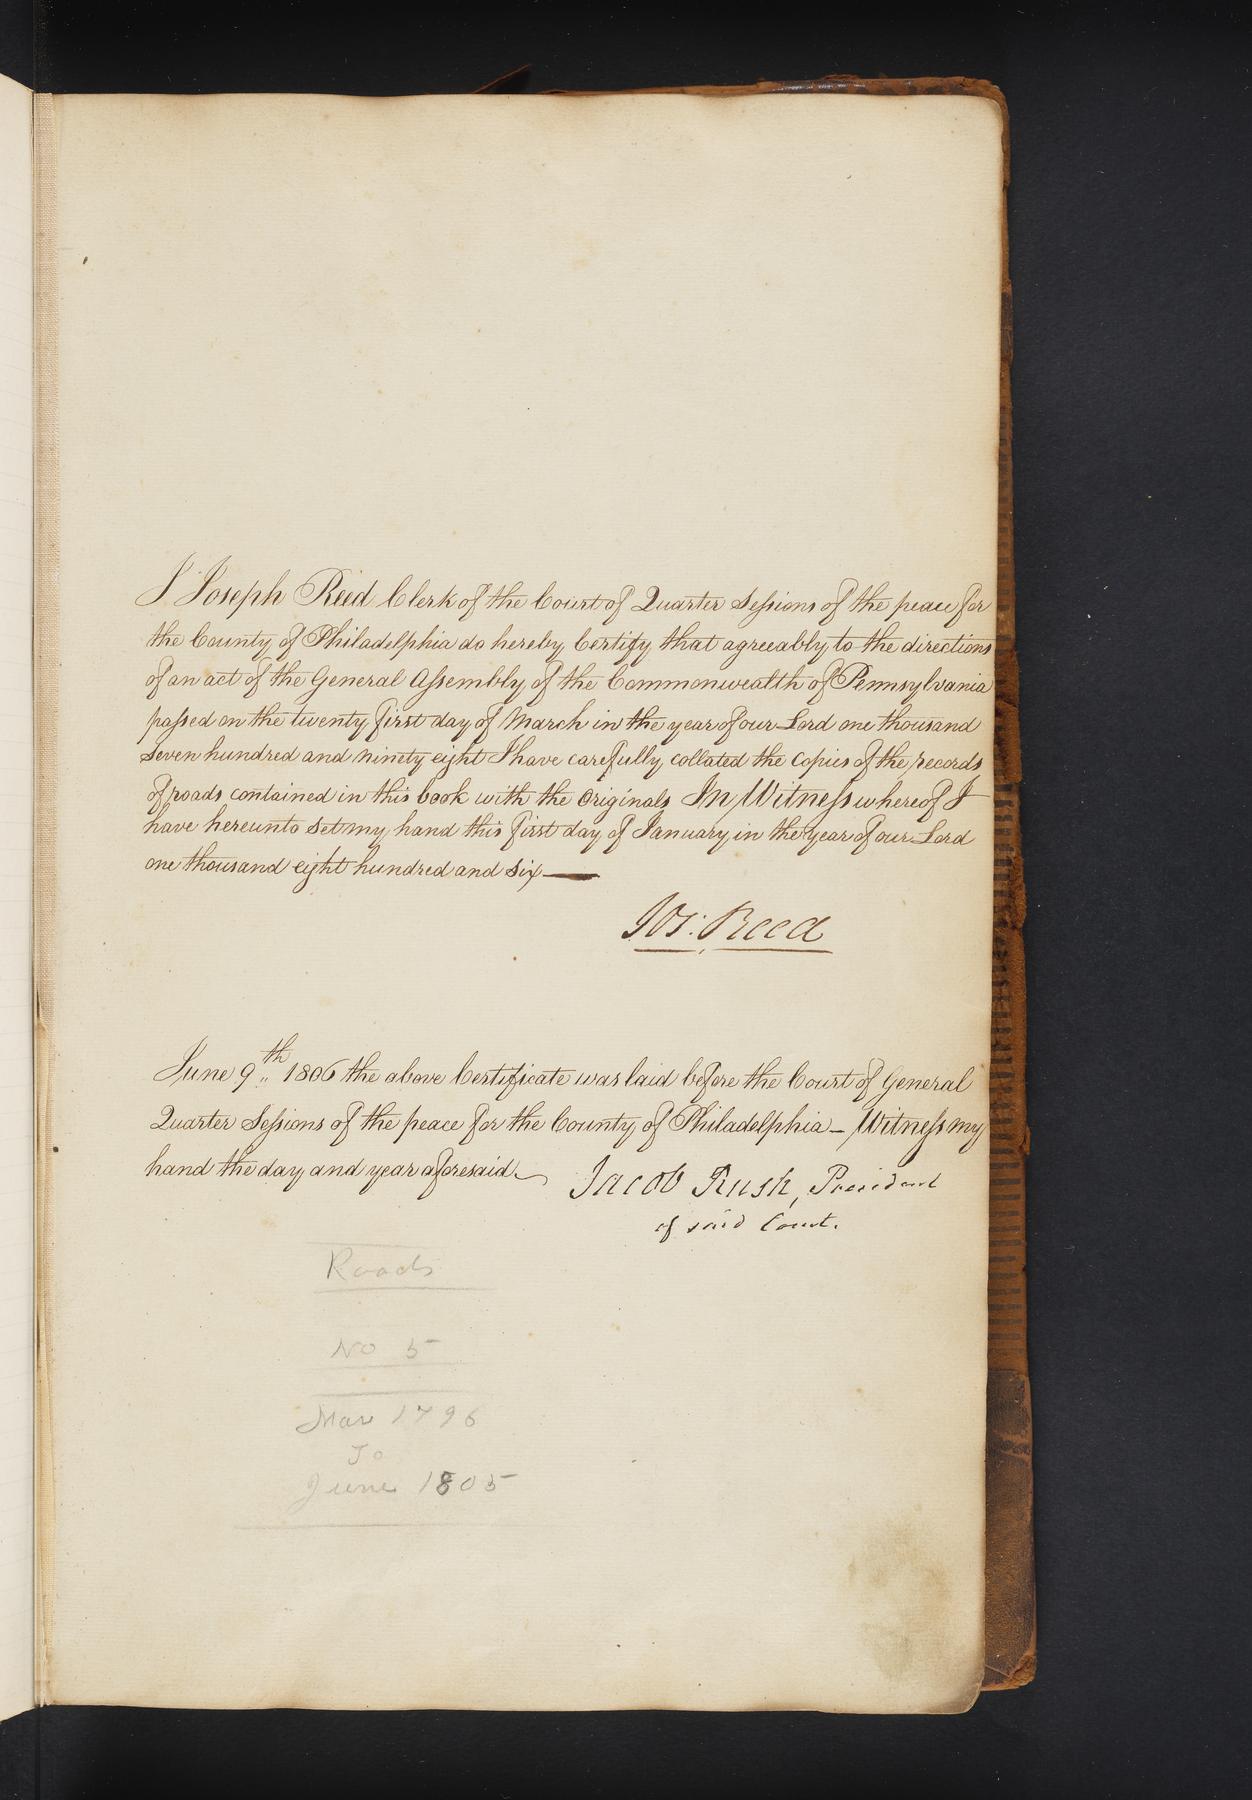 I Joseph Reed Clerk of the Court of Quarter Sessions of the peace for
the County of Philadelphia do hereby Certify that agreeably to the directions
of an act of the General Assembly of the Commonwealth of Pennsylvania
passed on the twenty first day of March in the year of our Lord one thousand
Seven hundred and ninety eight I have carefully collated the Copies of the records
of roads contained in this book with the Originals In Witness whereof I
have hereunto Set my hand this first day of January in the year of our Lord
one thousand eight hundred and Six
Jos: Reed
June 9th 1806 the above Certificate was laid before the Court of General
Quarter Sessions of the peace for the County of Philadelphia – Witness my
hand the day and year aforesaid
Jacob Rush, President
of said Court.
Roads
No 5
Mar 1796
To
June 1805